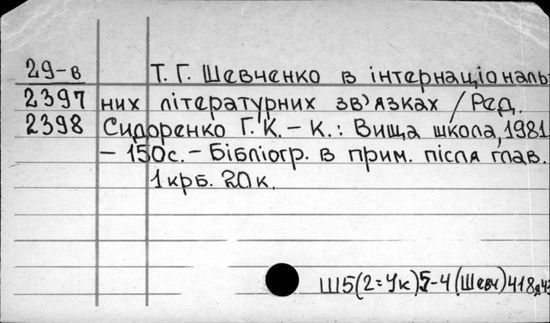 29-в Т. Г. Шевченко в інтернаціональ-
2397 них літературних зв'язках / Ред.
2398 Сидоренко Г. К. – К.: Вища школа, 1981
– 150с. – Бібліогр. в прим. після глав.
1крб. 20к.
Ш5(2=Ук)5-4(Шевч)418я43